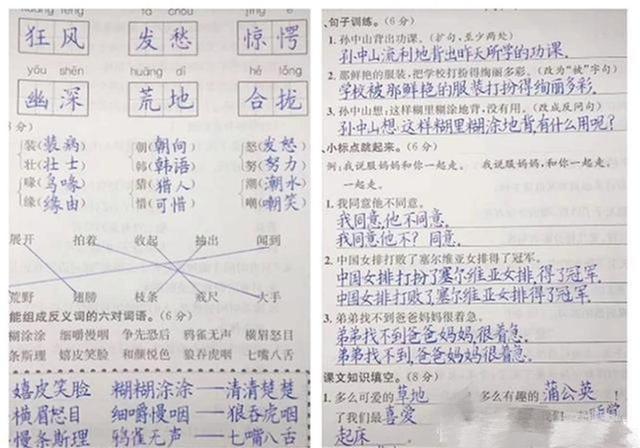 kuáng fēng fā chóu jīng è
狂风 发愁 惊愕
yōu shēn huāng dì hé lǒng
幽深 荒地 合拢
分)
装(装病) 朝(朝向) 怒(发怒)
壮(壮士) 韩(韩语) 努(努力)
喙(鸟喙) 猎(猎人) 潮(潮水)
缘(缘由) 惜(可惜) 嘲(嘲笑)
展开 拍着 收起 抽出 闻到
荒野 翅膀 枝条 戒尺 大手
能组成反义词的六对词语。(6分)
糊涂涂 细嚼慢咽 争先恐后 鸦雀无声 横眉怒目
条斯理 嬉皮笑脸 和颜悦色 狼吞虎咽 七嘴八舌
嬉皮笑脸 糊糊涂涂——清清楚楚
横眉怒目 细嚼慢咽——狼吞虎咽
慢条斯理 鸦雀无声——七嘴八舌
、句子训练。(6分)
1. 孙中山背出功课。(扩句,至少两处)
孙中山流利地背出昨天所学的功课.
2. 那鲜艳的服装,把学校打扮得绚丽多彩。(改为“被”字句)
学校被那鲜艳的服装打扮得绚丽多彩.
3. 孙中山想:这样糊里糊涂地背,没有用。(改成反问句)
孙中山想:这样糊里糊涂地背有什么用呢?
小标点跳起来。(6分)
例:我说服妈妈和你一起走。 我说服妈妈,和你一起走。
一起走。
1. 我同意他不同意。
我同意,他不同意.
我同意他不?同意.
2. 中国女排打败了塞尔维亚女排得了冠军。
中国女排打扮了塞尔维亚女排,得了冠军.
中国女排打败了,塞尔维亚女排得了冠军.
3. 弟弟找不到爸爸妈妈很着急。
弟弟找不到爸爸妈妈,很着急.
弟弟找不到,爸爸妈妈很着急.
课文知识填空。(8分)
1. 多么可爱的草地 多么有趣的蒲公英!
了我们最喜爱
起床.